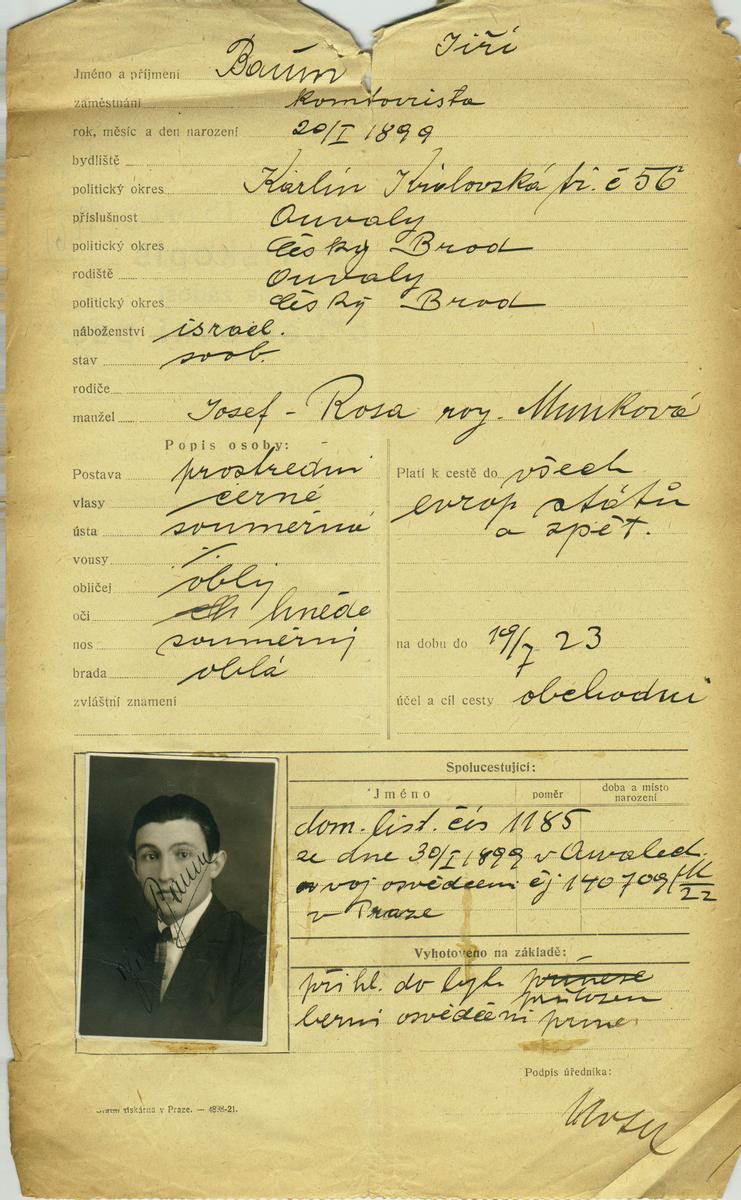 Jméno a příjmení Baum Jiří
zaměstnání kontorista
rok, měsíc a den narození 20/I 1899
bydliště
politický okres Karlín Královská tř. č 56
příslušnost Ouvaly
politický okres Český Brod
rodiště Ouvaly
politický okres Český Brod
náboženství israel.
stav svob.
rodiče
manžel Josef - Rosa roz. Munková
Popis osoby:
Postava prostřední
vlasy černé
ústa souměrná
vousy
obličej oblý
oči hnědé
nos souměrný
brada oblá
zvláštní znamení
Platí k cestě do všech
evrop států
a zpět.
na dobu do 19/7 23
účel a cíl cesty obchodní
Spolucestující:
Jméno poměr doba a místo narození
dom. list. čís 1185
ze dne 30/I 1899 v
voj osvědčení čj 140709/ 22
v Praze
Vyhotoveno na základě:
přihl. do bytu
přiložen
berní osvědčení
Podpis úředníka:
Jiří Baum
tiskárna v Praze. — 4838-21.